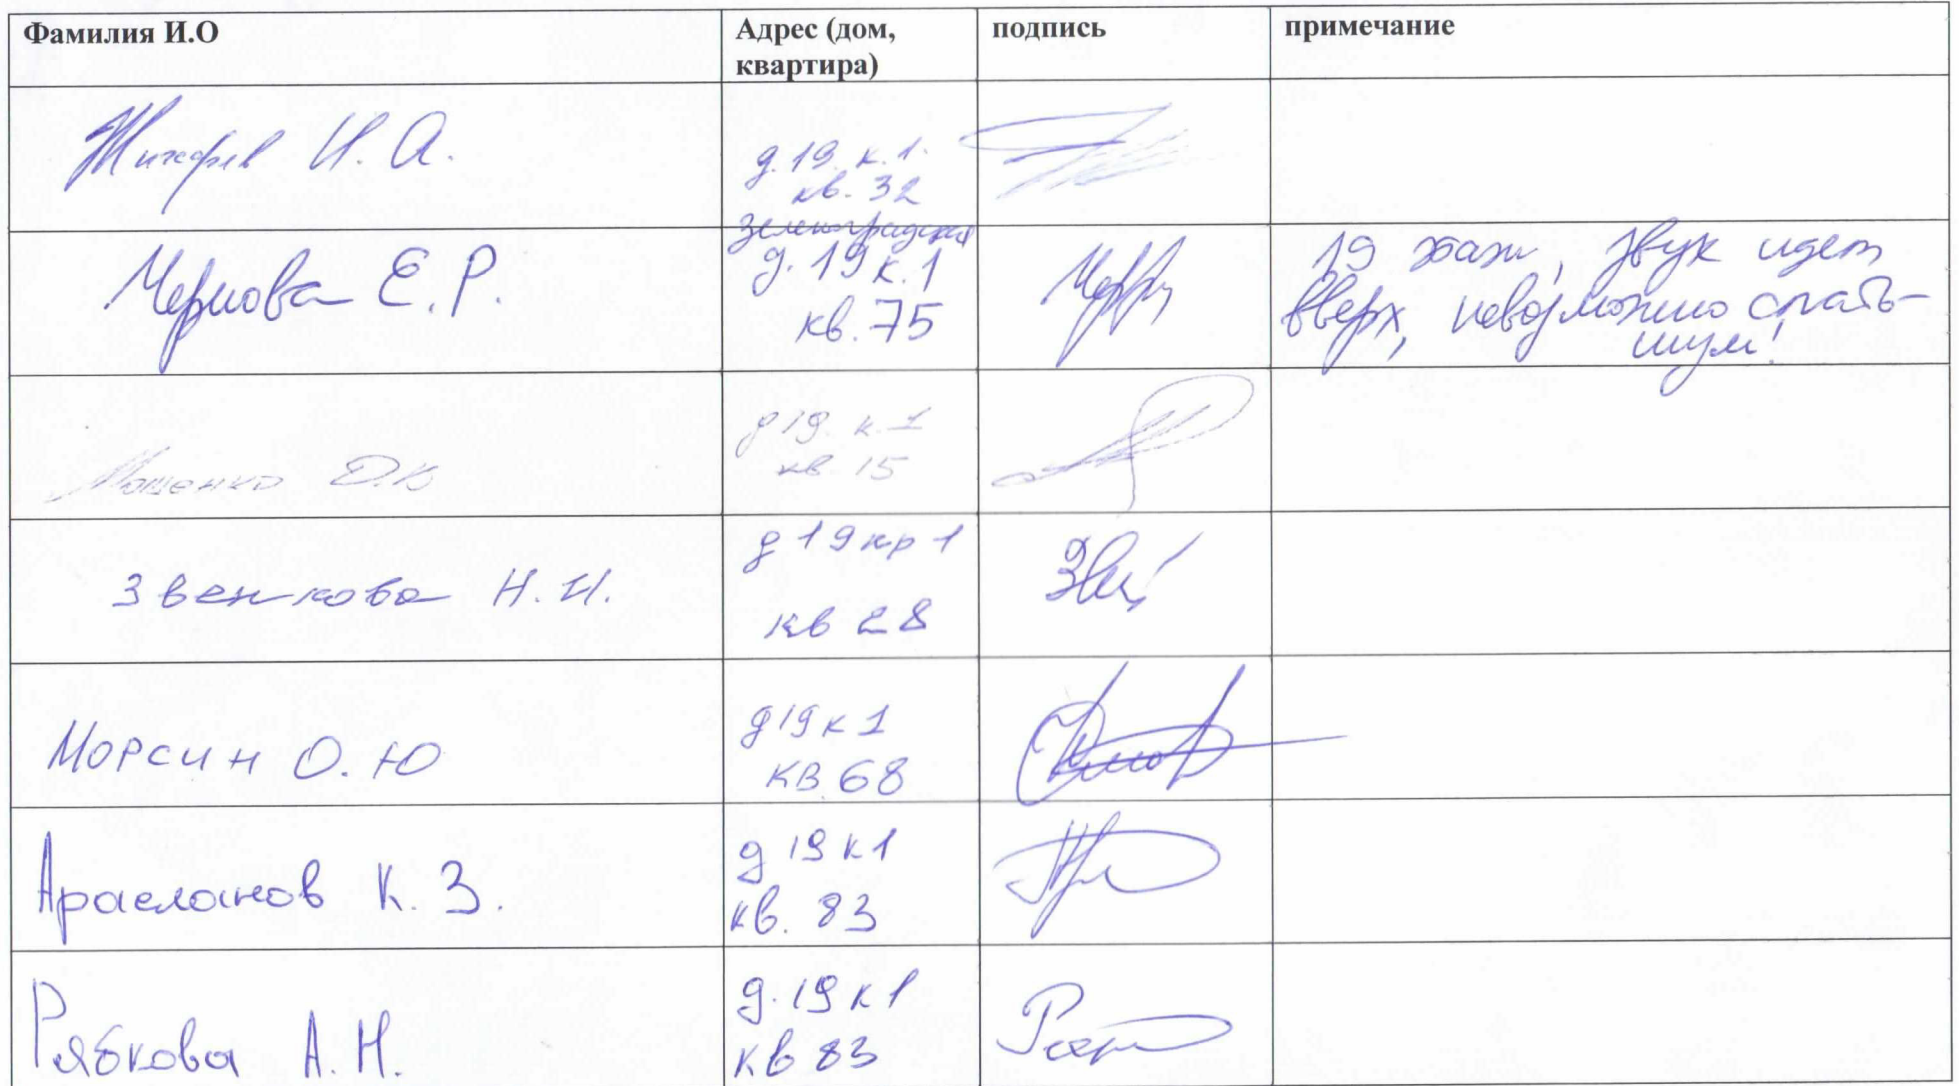 Фамилия И.О
Адрес (дом,
квартира)
подпись
примечание
И. А.
д. 19 к. 1.
кв. 32
Чернова Е.Р.
Зеленоградская
д. 19 к 1
кв. 75
19 этаж, звук идет
вверх, невозможно спать-
шум!
д 19. к. 1
кв. 15
Звенкова Н.И.
д 19 кр 1
кв 28
Морсин О.Ю
д 19 к 1
КВ 68
Арасланов К. З.
д 19 к1
кв. 83
Рябкова А.Н.
д. 19 к1
кв 83